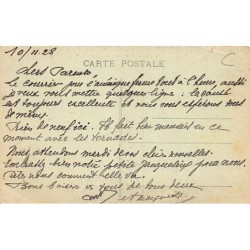 10/11.28
C
CARTE POSTALE
Chers Parents,
Le courrier pour l'amérique ferme tout à l'heure, aussi
je veux vous mettre quelques lignes; la santé
est toujours excellente et nous vous espérons tous
de même.
Rien de neuf ici. Il fait bien mauvais en ce
moment avec les tornades.
Nous attendons mardi de vos chères nouvelles.
Embrassez bien notre petite pour nous.
dites nous comment elle va.
Bons baisers à vous de tous deux
et Marguerite